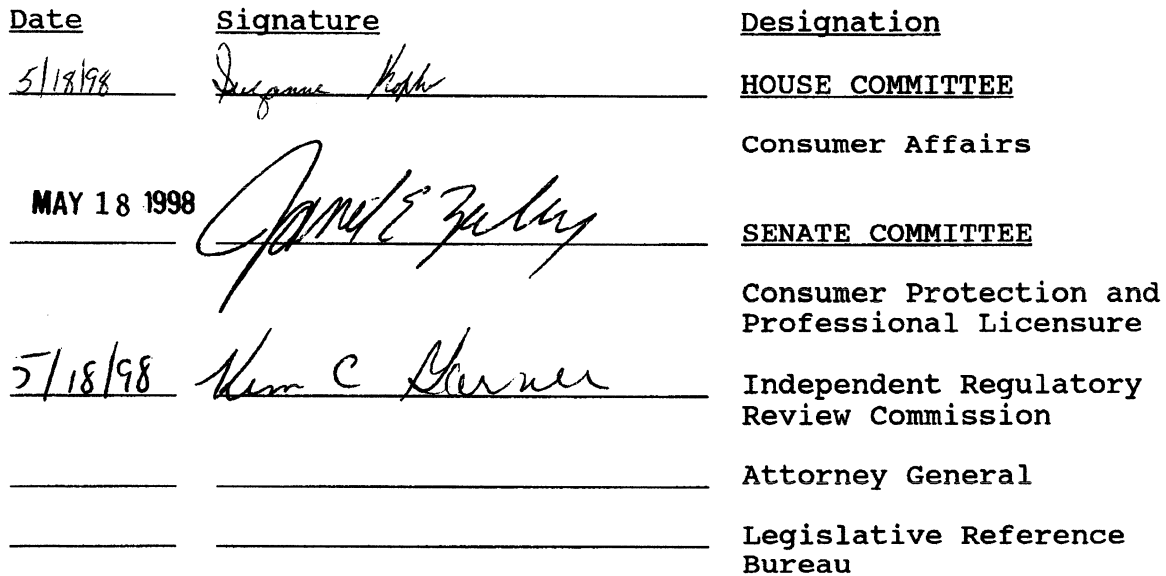 Date Signature Designation
5/18/98 Suzanne HOUSE COMMITTEE
Consumer Affairs
MAY 18 1998 Janet E SENATE COMMITTEE
Consumer Protection and
Professional Licensure
5/18/98 Kim C Garner Independent Regulatory
Review Commission
Attorney General
Legislative Reference
Bureau